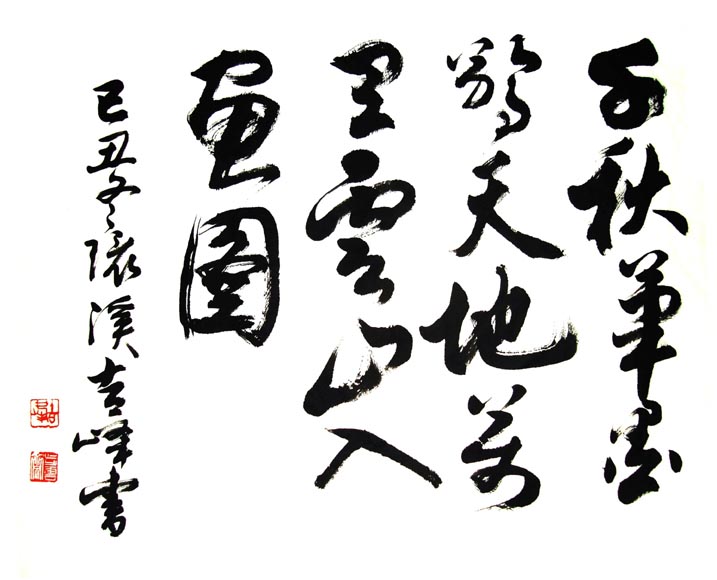 千秋筆墨
驚天地萬
里雲山入
畫圖
己丑冬溪吉峰書